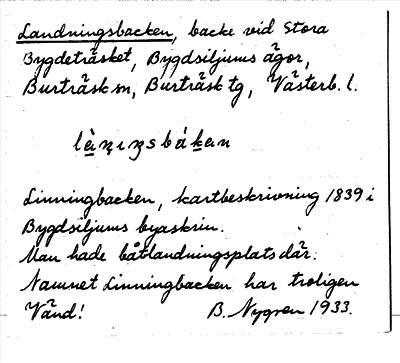 Landningsbacken, backe vid Stora
Bygdeträsket, Bygdsiljums ägor,
Burträsk sn, Burträsk tg, Västerb. l.
Linningbacken, kartbeskrivning 1839 i
Bygdsiljums byaskrin.
Man hade båtlandningsplats där.
Namnet Linningbacken har troligen
Vänd! B. Nygren 1933.